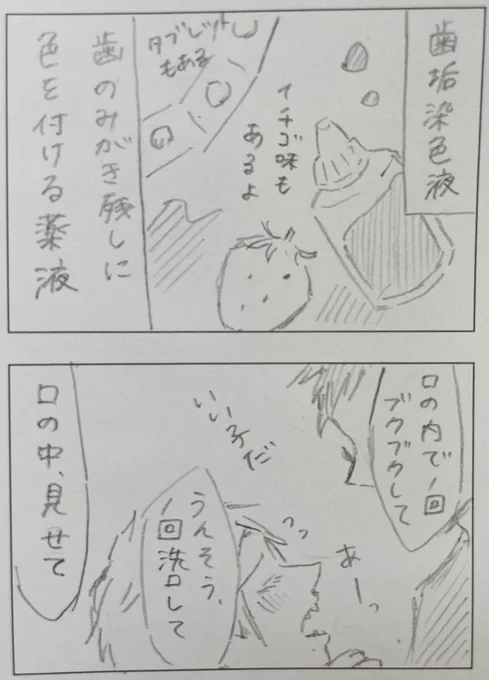 歯垢染色液
イチゴ味も
あるよ
タブレット
もある
歯のみがき残しに
色を付ける薬液
口の内で1回
ブクブクして
あーっ
いい子だ
うんそう、
1回洗口して
口の中、見せて